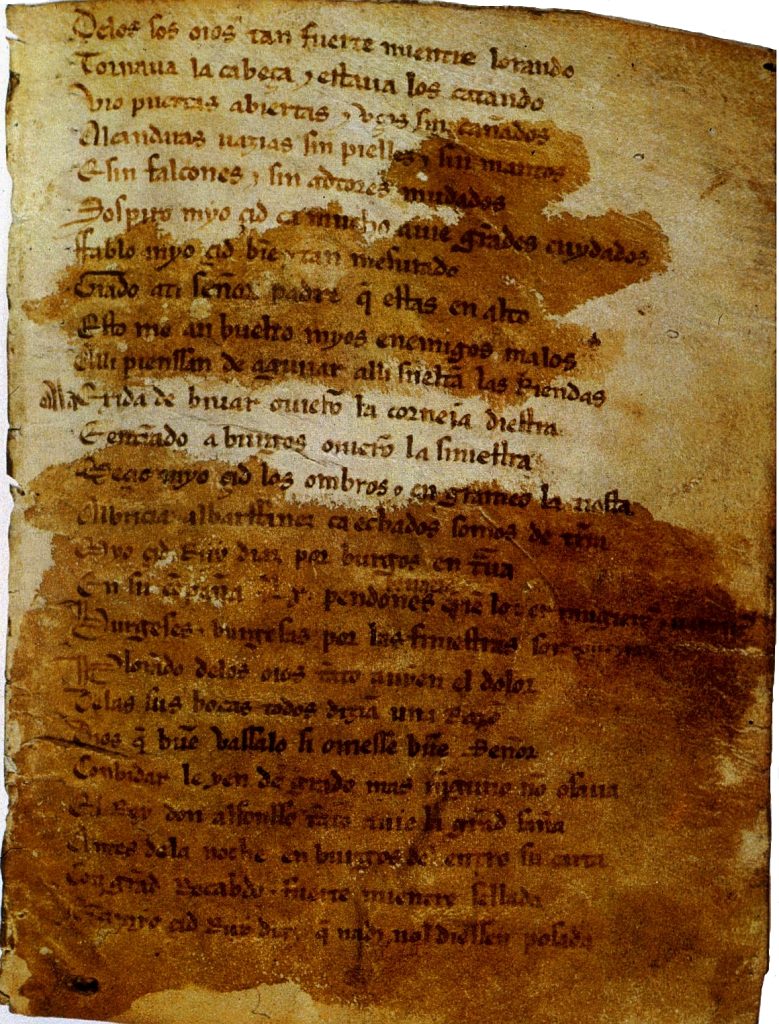 Delos sos oios tan fuerte mientre lorando
Tornaua la cabeça ⁊ estaua los catando
Vio puertas abiertas ⁊ vços sin cañados
Alcandaras uazias sin pielles ⁊ sin mantos
E sin falcones ⁊ sin adtores mudados
Sospiro myo çid ca mucho auie grãdes cuydados
Ffablo myo çid biẽ ⁊ tan mesurado
Grado ati señor padre q̃ estas en alto
Esto me an buelto myos enemigos malos
Alli pienssan de aguiiar alli sueltã las Riendas
Ala Exida de biuar ouierõ la corneja diestra
E entrãdo a burgos ouierõ la siniestra
Meçio myo çid los ombros ⁊ en grameo la tiesta
Albricia albarffanez ca echados somos de tr̃ra
Myo çid Ruy diaz por burgos en trua
En su cõpaña Lx pendones
Burgeses ⁊ burgesas por las finiestras son
Plorãdo delos oios tãto auyen el dolor
Delas sus bocas todos dizian una Razõ
Dios q̃ buẽ vassalo si ouiesse buẽ Señor
Conbidar le yen de grado mas nj̃guno nõ osaua
El Rey don alfonsso tãto auie la grãd saña
Antes dela noche en burgos del entro su carta
Con grãd Recabdo ⁊ fuerte mientre sellada
çid Ruy diaz q̃ nadi nol diessen posada